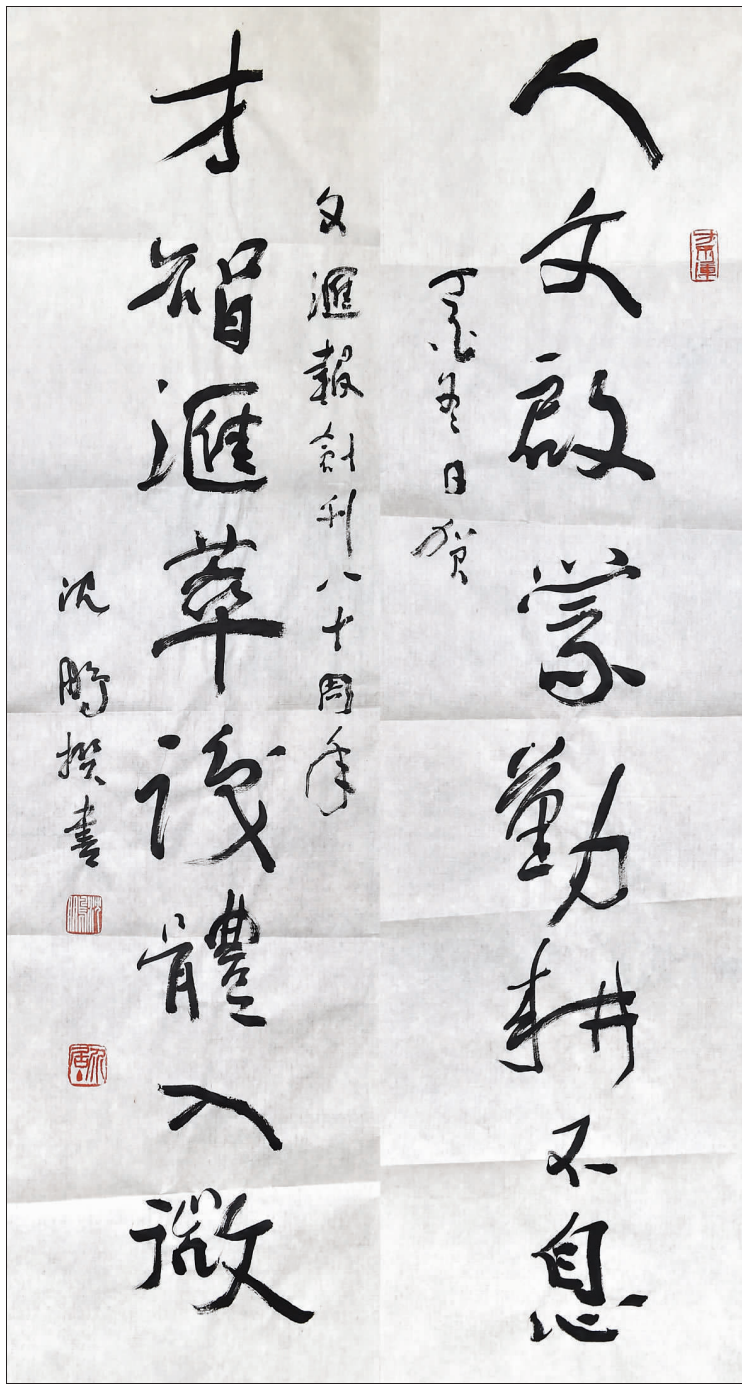 人文啟蒙勤耕不息
丁酉冬日贺
文滙報創刊八十周年
才智滙萃體入微
沈鵬撰書